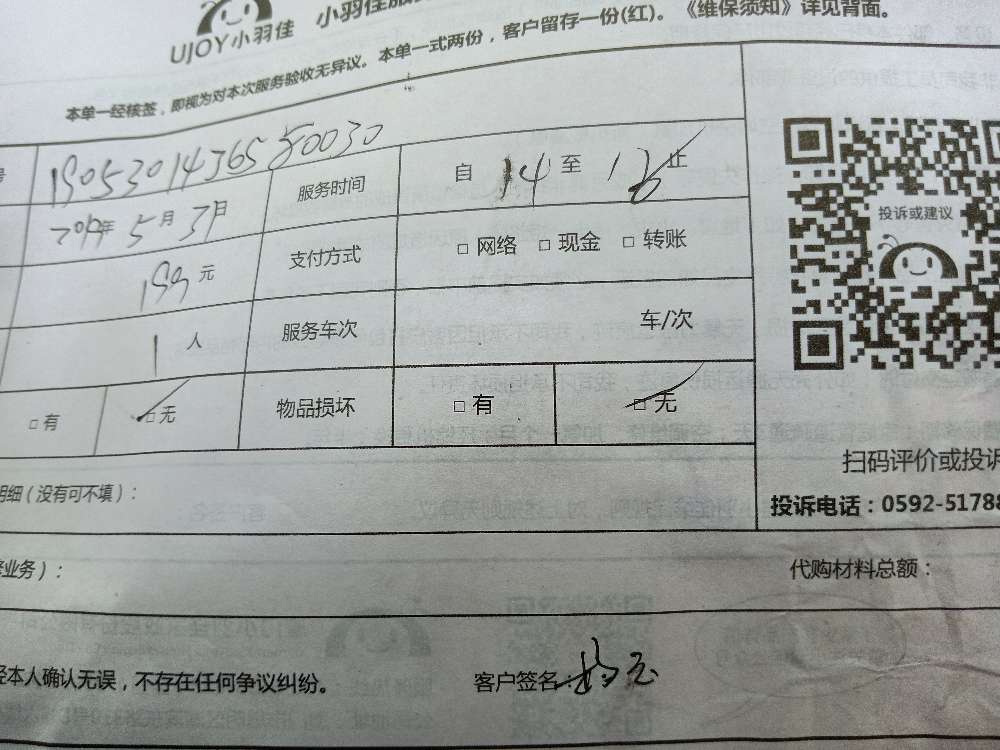 UJOY小羽佳 小羽佳服
本单一经核签，即视为对本次服务验收无异议。本单一式两份，客户留存一份(红)。《维保须知》详见背面。
号 19053014365 0030
2019年 5月 3月 服务时间 自 14 至 18 止
199 元 支付方式 □ 网络 □ 现金 □ 转账
1 人 服务车次 车/次
□ 有 □ 无 物品损坏 □ 有 □ 无
投诉或建议
扫码评价或投诉
投诉电话：0592-51788
明细（没有可不填）：
业务）： 代购材料总额：
经本人确认无误，不存在任何争议纠纷。 客户签名